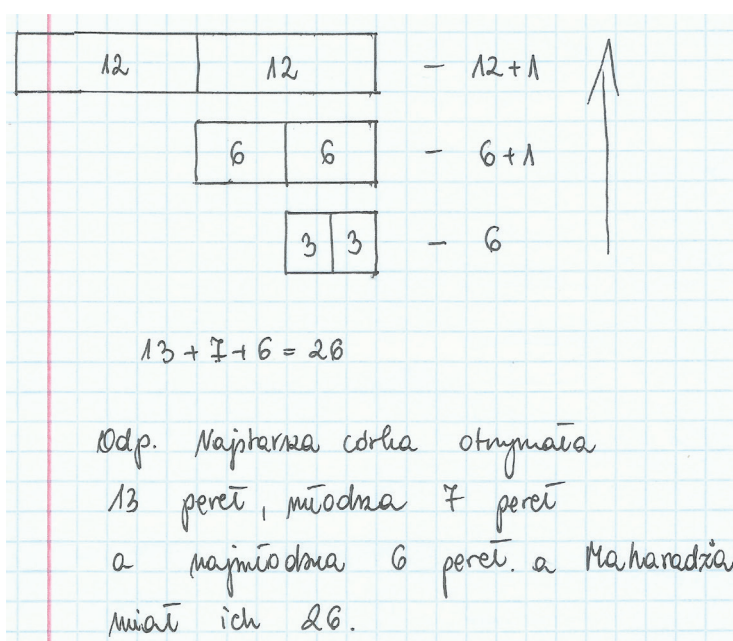 12 12 - 12+1
6 6 - 6+1
3 3 - 6
13+7+6=26
Odp. Najstarsza córka otrzymała
13 pereł, młodsza 7 pereł
a najmłodsza 6 pereł. a Maharadża
miał ich 26.